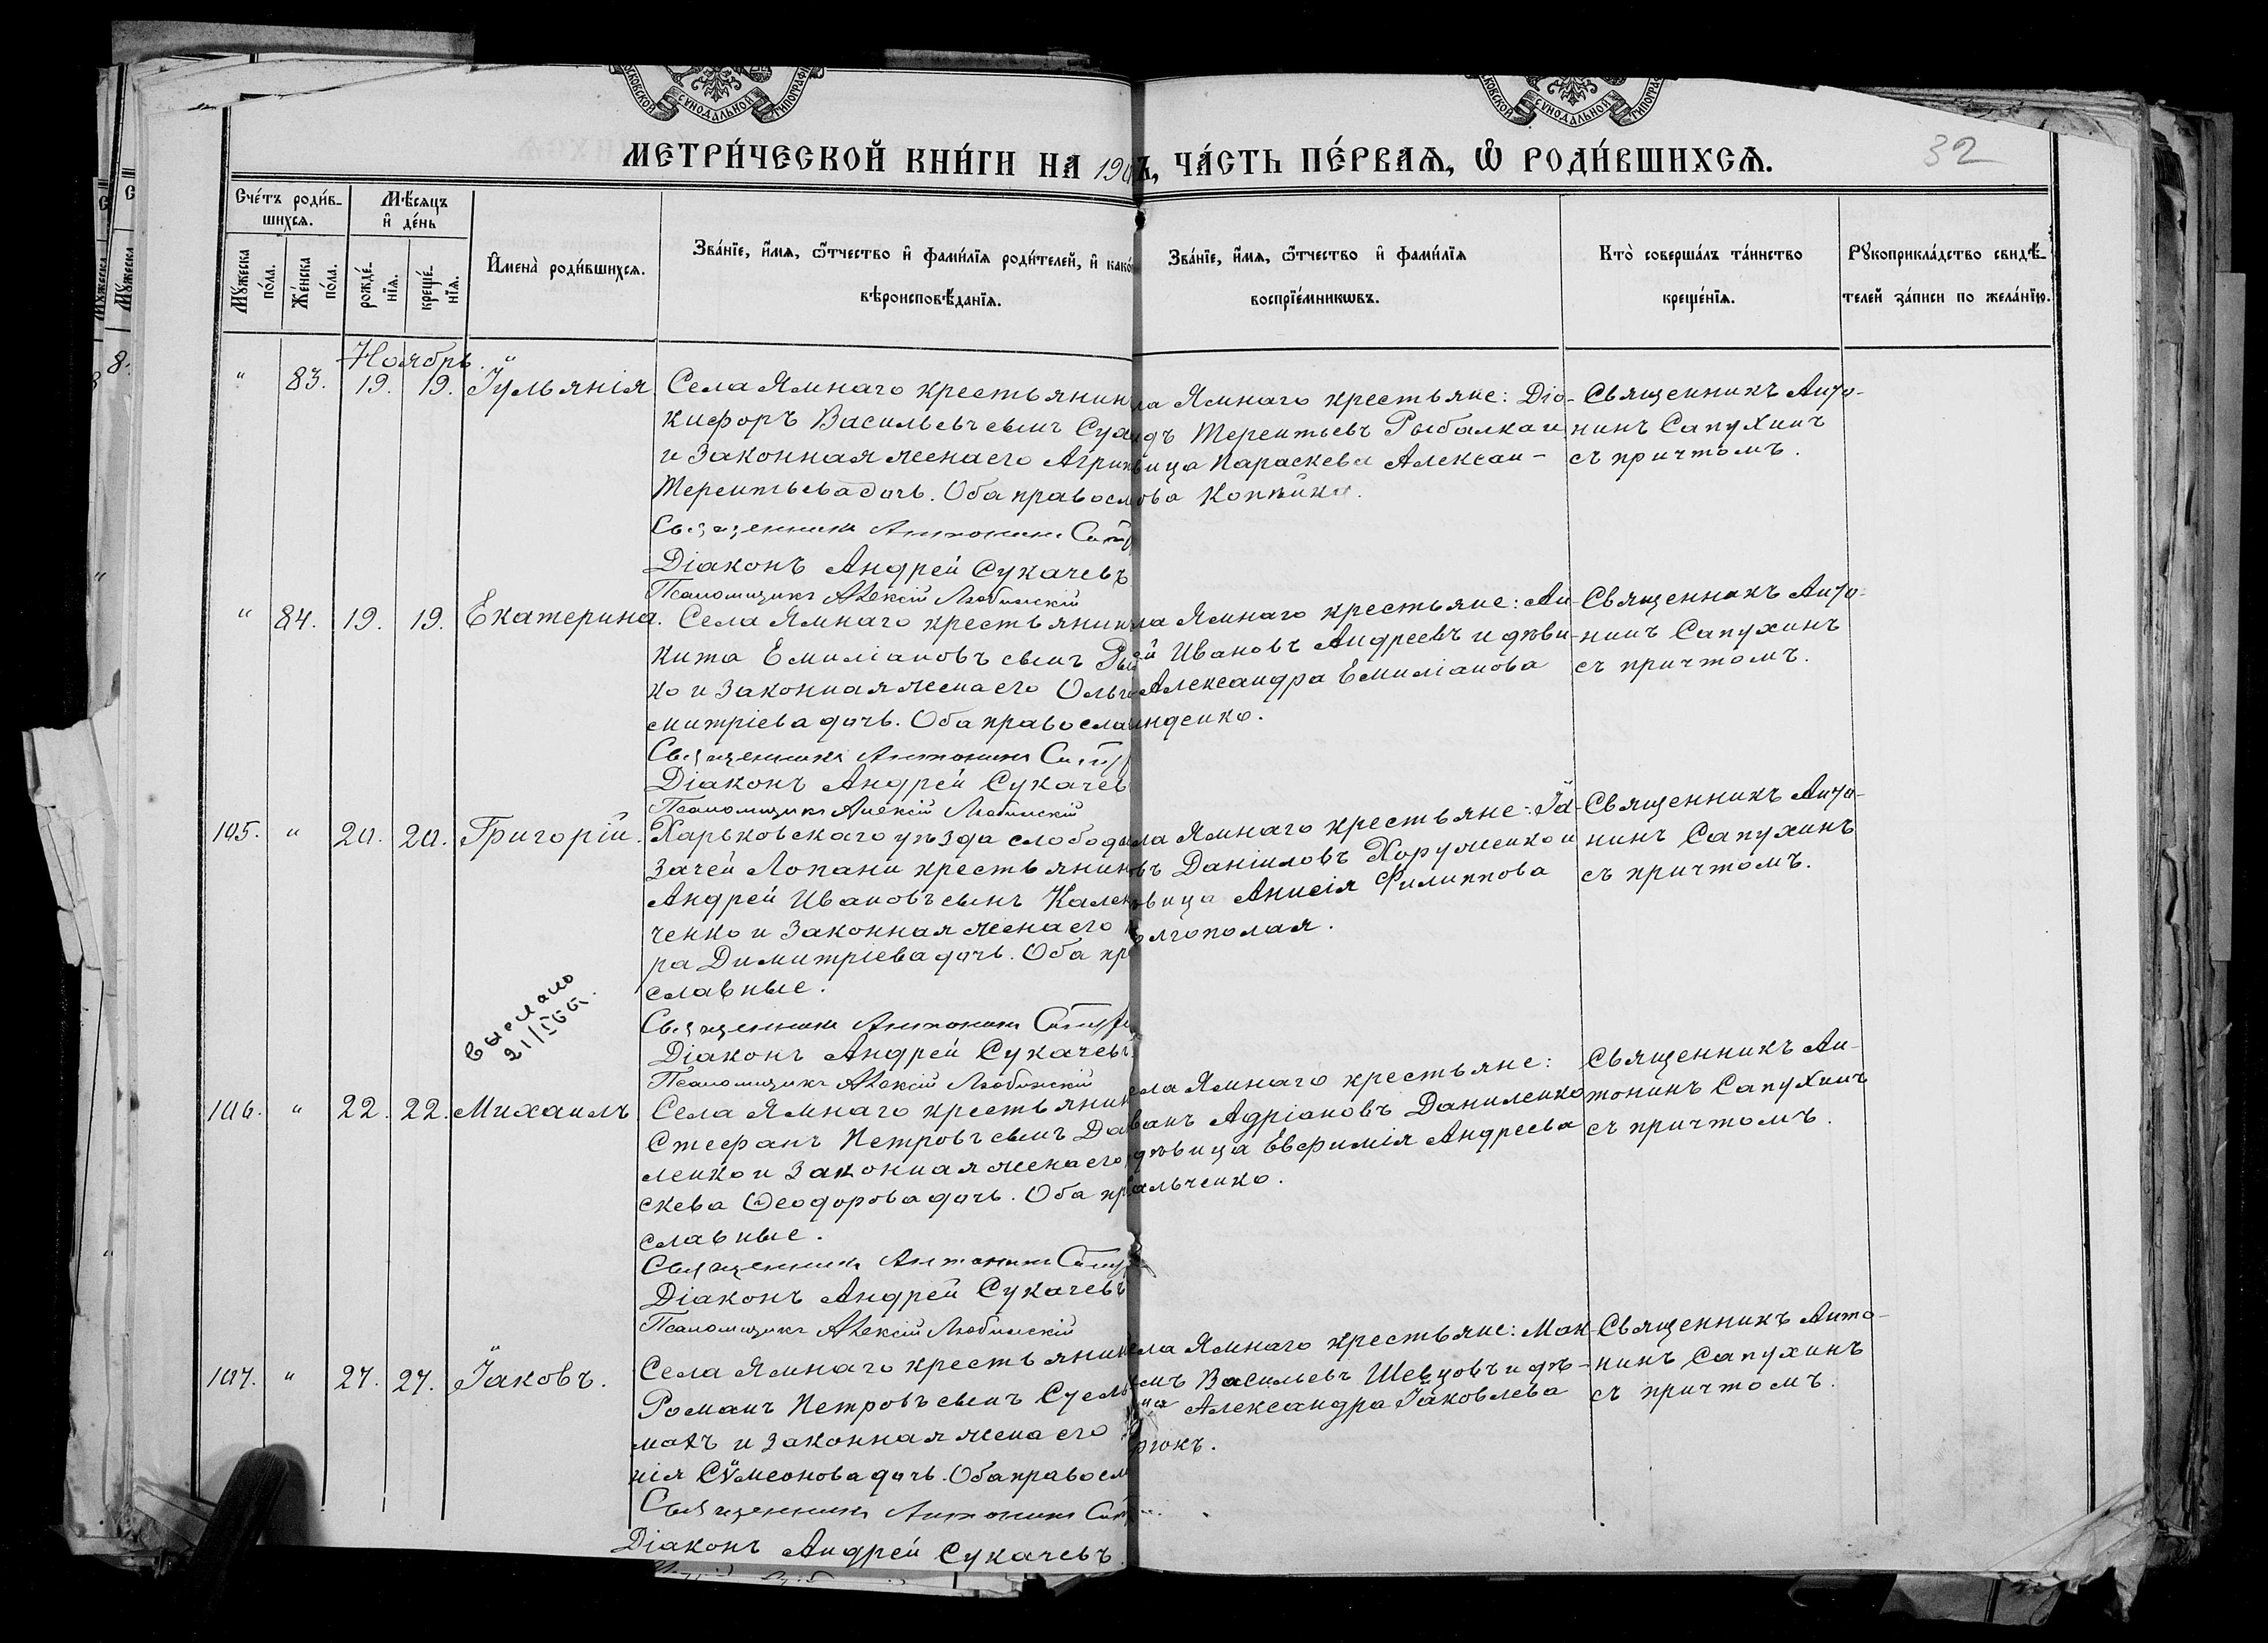 МОСКОВСКОЙ СѴНОДАЛЬНОЙ ТИПОГРАФІ
МОСКОВСКОЙ СѴНОДАЛЬНОЙ ТИПОГРАФІ
32
МЕТРИ́ЧЕСКОЙ КНИ́ГИ НА 190 Ъ, ЧА́СТЬ ПЕ́РВАѦ, Ѡ҆ РОДИ́ВШИХСѦ.
Сче́тъ роди́в-
шихсѧ.
Мѣ́сѧцъ
и҆ де́нь
Мꙋ́жеска
по́ла.
Же́нска
по́ла.
рожде́-
нїѧ.
креще́-
нїѧ.
И҆мена̀ роди́вшихсѧ.
Зва́нїе, и҆́мѧ, ѻ҆́тчество и҆ фами́лїѧ роди́телей, и҆ како́
вѣроисповѣ́данїѧ.
Зва́нїе, и҆́мѧ, ѻ҆́тчество и҆ фами́лїѧ
воспрїе́мникѡвъ.
Кто̀ соверша́лъ та́инство
креще́нїѧ.
Рꙋкоприкла́дство свидѣ́-
телей за́писи по жела́нїю.
Ноябрь.
" 83. 19. 19. Іульянія
Села Ямнаго крестьянин
кифоръ Васильевъ сынъ Суха
и законная жена его Агрип
Терентьева дочь. Оба правосл
Священникъ Антонинъ Сап
Діаконъ Андрей Сукачевъ
Псаломщикъ Алексій Любинскій
ла Ямнаго крестьяне: Діо-
идъ Терентьевъ Рыбалка и
вица Параскева Алексан-
ова Копѣйка.
Священникъ Анто-
нинъ Сапухинъ
съ причтомъ.
" 84. 19. 19. Екатерина.
Села Ямнаго крестьянин
кита Емиліановъ сынъ Ры
ко и законная жена его Ольга
митріева дочь. Оба православ
Священникъ Антонинъ Сап
Діаконъ Андрей Сукачев
Псаломщикъ Алексій Любинскій
ла Ямнаго крестьяне: Ан-
ей Ивановъ Андреевъ и дѣви-
Александра Емиліанова
нденко.
Священникъ Анто-
нинъ Сапухинъ
съ причтомъ.
105. " 20. 20. Григорій.
Харьковскаго уѣзда слободы
зачей Лопани крестьянин
Андрей Ивановъ сынъ Кален
ченко и законная жена его
ра Димитріева дочь. Оба пр
славные.
Священникъ Антонинъ Сапух
Діаконъ Андрей Сукачевъ
Псаломщикъ Алексій Любинскій
ла Ямнаго крестьяне: Іа-
въ Даніиловъ Хоруженко и
вица Анисія Филиппова
олгополая.
Священникъ Анто-
нинъ Сапухинъ
съ причтомъ.
Выслано
106. " 22. 22. Михаилъ
Села Ямнаго крестьянин
Стефанъ Петровъ сынъ Да
ленко и законная жена его
скева Ѳеодорова дочь. Оба пр
славные.
Священникъ Антонинъ Сапу
Діаконъ Андрей Сукачевъ
Псаломщикъ Алексій Любинскій
ела Ямнаго крестьяне:
ванъ Адріановъ Даниленко
дѣвица Евфимія Андреева
альченко.
Священникъ Ан-
тонинъ Сапухинъ
съ причтомъ.
107. " 27. 27. Іаковъ.
Села Ямнаго крестьянин
Романъ Петровъ сынъ Суель
махъ и законная жена его
нія Сѵмеонова дочь. Оба правосл
Священникъ Антонинъ Сап
Діаконъ Андрей Сукачевъ.
ела Ямнаго крестьяне: Мак-
имъ Васильевъ Шевцовъ и дѣ-
ица Александра Іаковлева
рюкъ.
Священникъ Анто-
нинъ Сапухинъ
съ причтомъ.